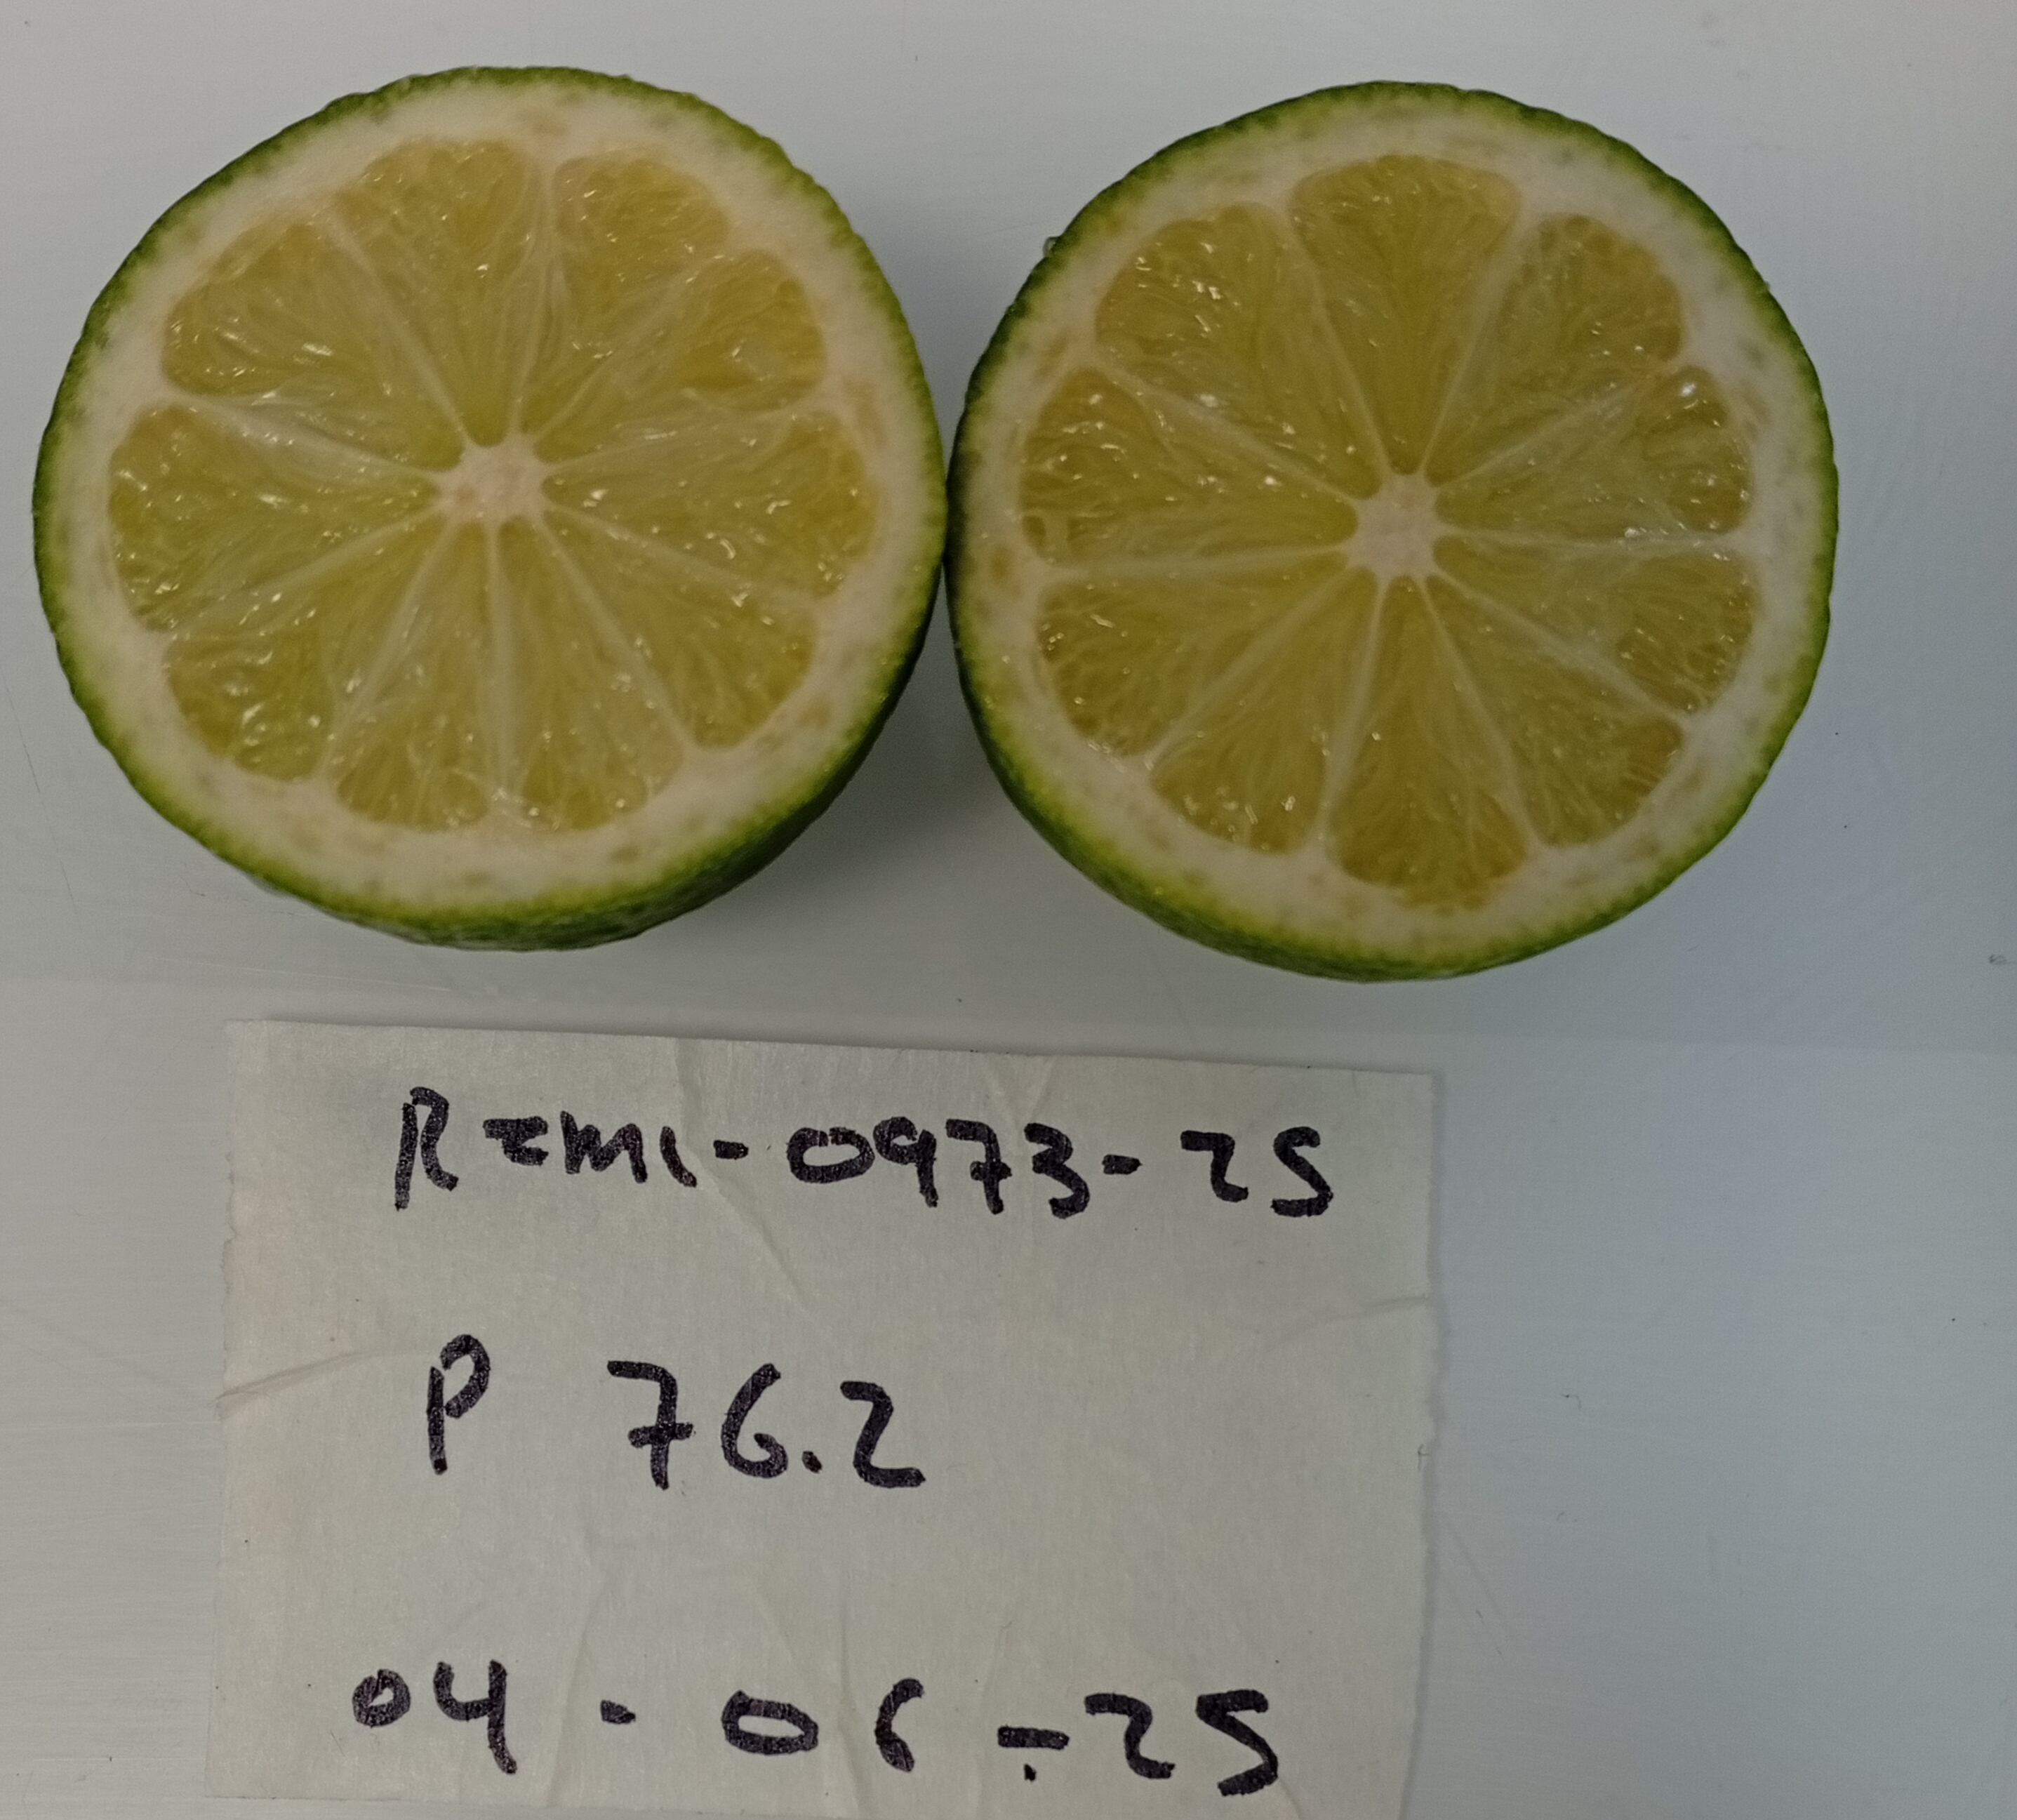 Rzmi-0973-25
P 76.2
04-06-25